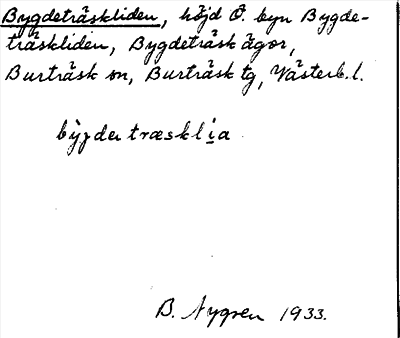 Bygdeträskliden, höjd Ö. byn Bygde-
träskliden, Bygdeträsk ägor,
Burträsk sn, Burträsk tg, Västerb. l.
bỳgdætræsklịa
B. Nygren 1933.